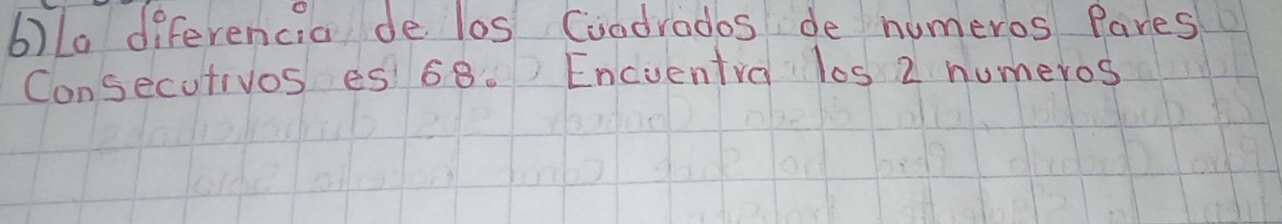 6) La diferencia de los Cuadrados de numeros Pares
Consecutivos es 68. Encuentra los 2 numeros